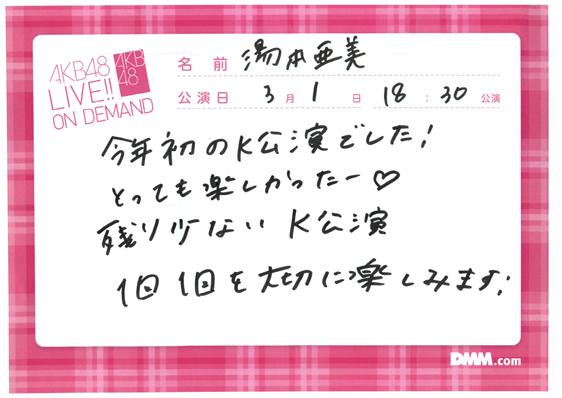 AKB48
LIVE!!
ON DEMAND
AKB
48
名前 湯本亜美
公演日 3月1日 18:30公演
今年初のK公演でした!
とっても楽しかったー♡
残り少ないK公演
1回1回を大切に楽しみます!
DMM.com